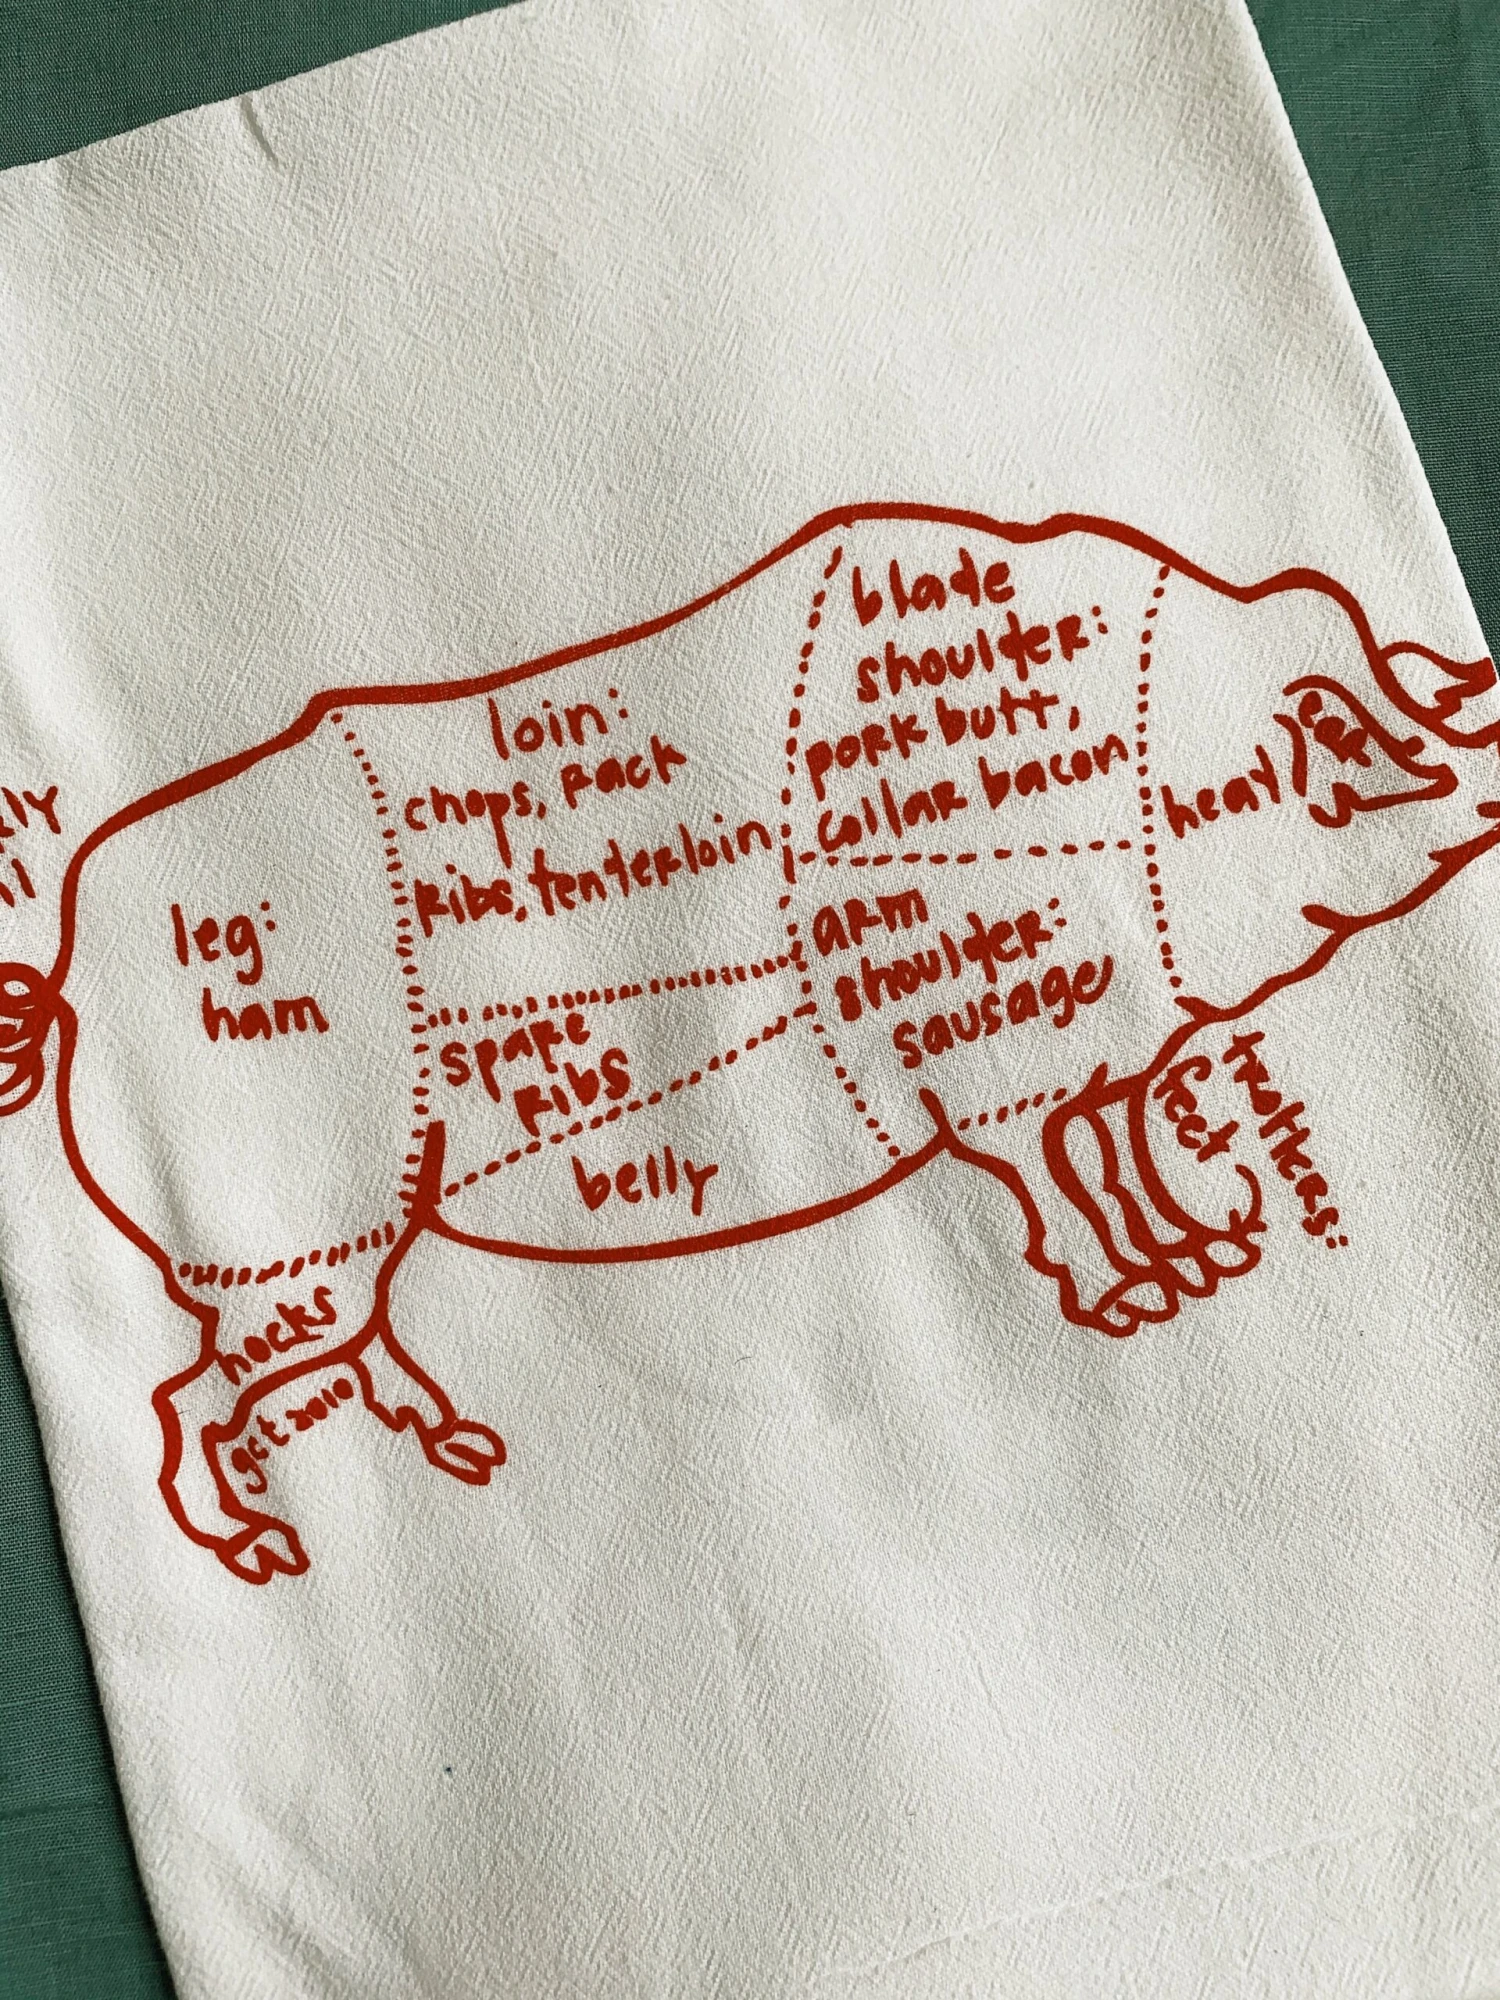 blade
shoulder:
pork butt,
collar bacon
loin:
chops, rack
ribs, tenderloin
head
ear
arm
shoulder:
sausage
leg:
ham
spare
ribs
belly
trotters:
feet
hocks
gct 2010